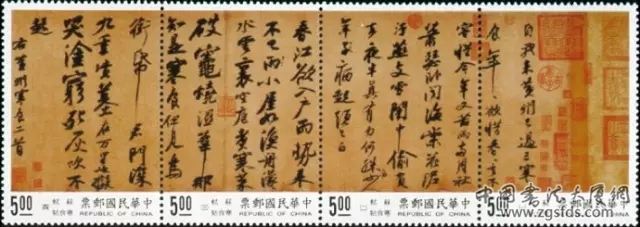 自我來黃州已過三寒
食年〻欲惜春春去不
容惜今年又苦雨兩月秋
蕭瑟卧聞海棠花泥
汙燕支雪闇中偷負
去夜半真有力何殊少
年子病起頭已白
春江欲入戶雨勢來
不已雨小屋如漁舟濛〻
水雲裏空庖煮寒菜
破竈燒濕葦那
知是寒食但見烏
銜帋君門深
九重墳墓在万里也擬
哭塗窮死灰吹不
起
右黃州寒食二首
5.00
中華民國郵票
REPUBLIC OF CHINA
蘇軾寒食帖
5.00
中華民國郵票
REPUBLIC OF CHINA
蘇軾寒食帖
5.00
中華民國郵票
REPUBLIC OF CHINA
蘇軾寒食帖
5.00
中華民國郵票
REPUBLIC OF CHINA
蘇軾寒食帖
中国书法大厦网
www.zgsfds.com